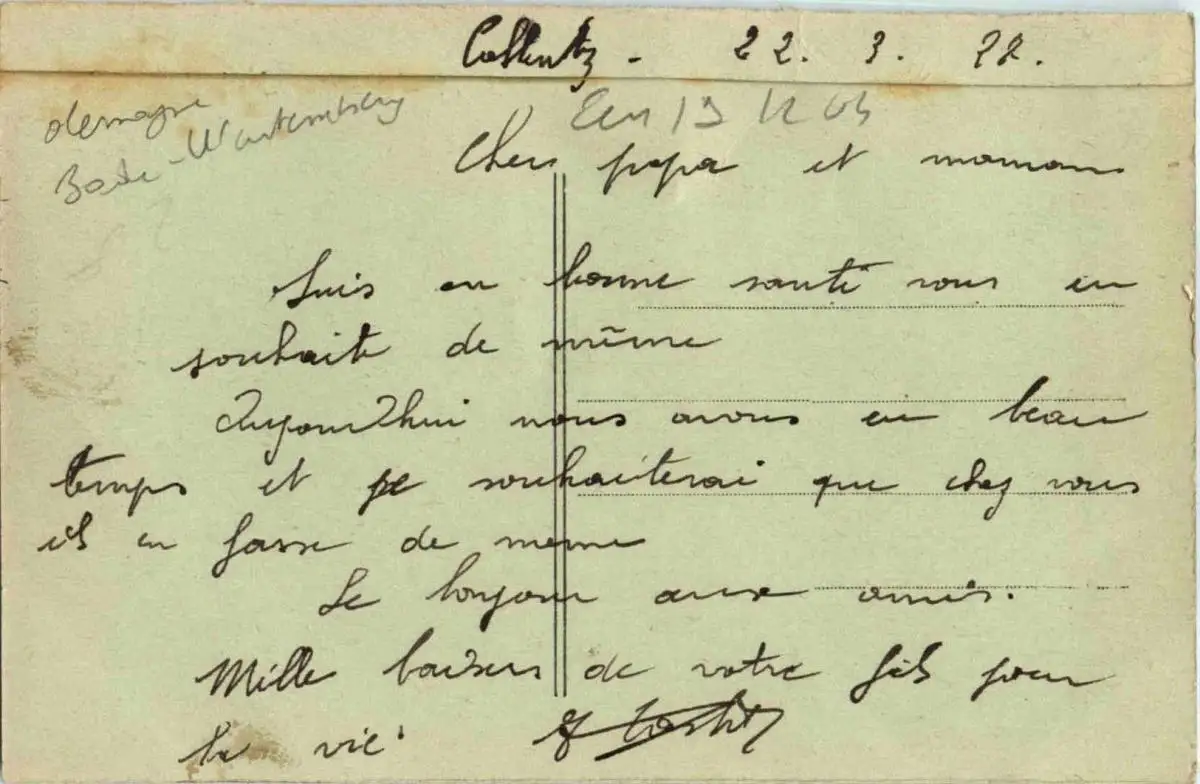 Coblentz - 22. 3. 22.
Bade-Wurtemberg
Chers papa et maman
Suis en bonne santé vous en
souhaite de même
Aujourd'hui nous avons eu beau
temps et je souhaiterai que chez vous
il en fasse de meme
Le bonjour aux amis.
Mille baisers de votre fils pour
la vie